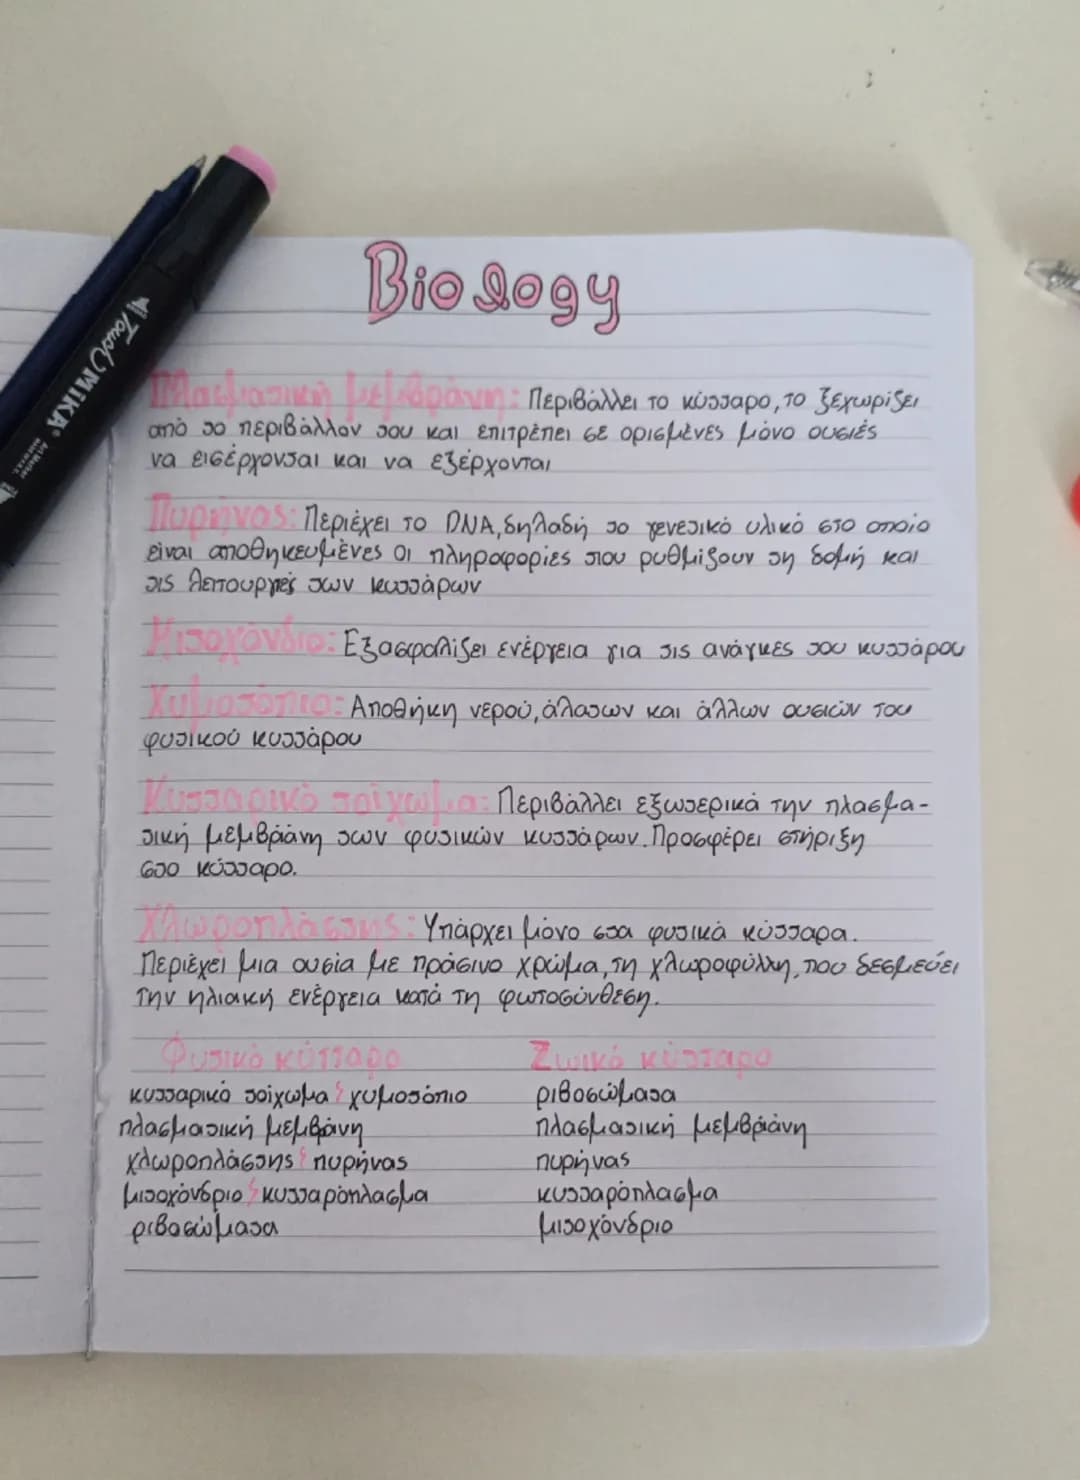 Biology
Πλασματική μεμβράνη: Περιβάλλει το κύτταρο, το ξεχωρίζει
από το περιβάλλον του και επιτρέπει σε ορισμένες μόνο ουσίες
να εισέρχονται και να εξέρχονται
Πυρήνας: Περιέχει το DNA, δηλαδή το γενετικό υλικό στο οποίο
είναι αποθηκευμένες οι πληροφορίες που ρυθμίζουν τη δομή και
τις λειτουργίες των κυττάρων
Μιτοχόνδριο: Εξασφαλίζει ενέργεια για τις ανάγκες του κυττάρου
Χυμοτόπιο: Αποθήκη νερού, άλατων και άλλων ουσιών του
φυτικού κυττάρου
Κυτταρικό τοίχωμα: Περιβάλλει εξωτερικά την πλασμα-
τική μεμβράνη των φυτικών κυττάρων. Προσφέρει στήριξη
στο κύτταρο.
Χλωροπλάστης: Υπάρχει μόνο στα φυτικά κύτταρα.
Περιέχει μια ουσία με πράσινο χρώμα, τη χλωροφύλλη, που δεσμεύει
την ηλιακή ενέργεια κατά τη φωτοσύνθεση.
Φυτικό κύτταρο Ζωικό κύτταρο
κυτταρικό τοίχωμα χυμοτόπιο ριβοσώματα
πλασματική μεμβράνη πλασματική μεμβράνη
χλωροπλάστης πυρήνας πυρήνας
μιτοχόνδριο κυτταρόπλασμα κυτταρόπλασμα
ριβοσώματα μιτοχόνδριο
Touch MIKA